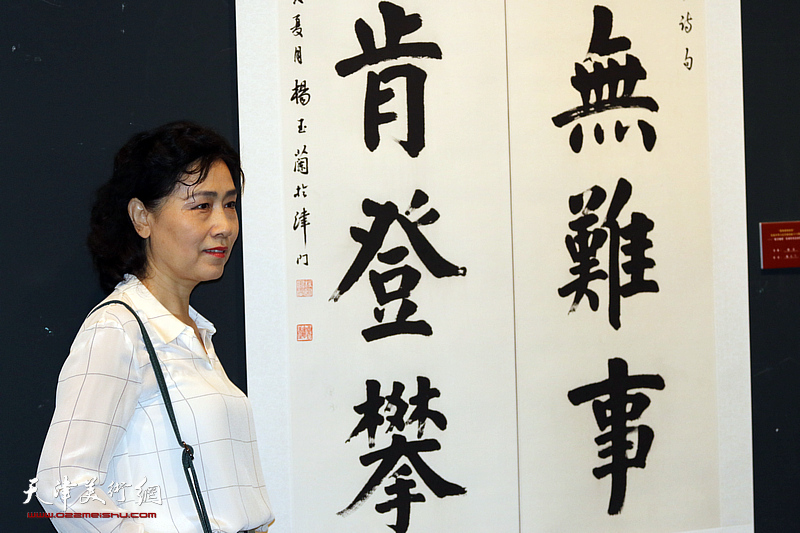 詩句
無難事
肯登攀
夏月楊玉蘭於津门
天津美術網
www.022meishu.com